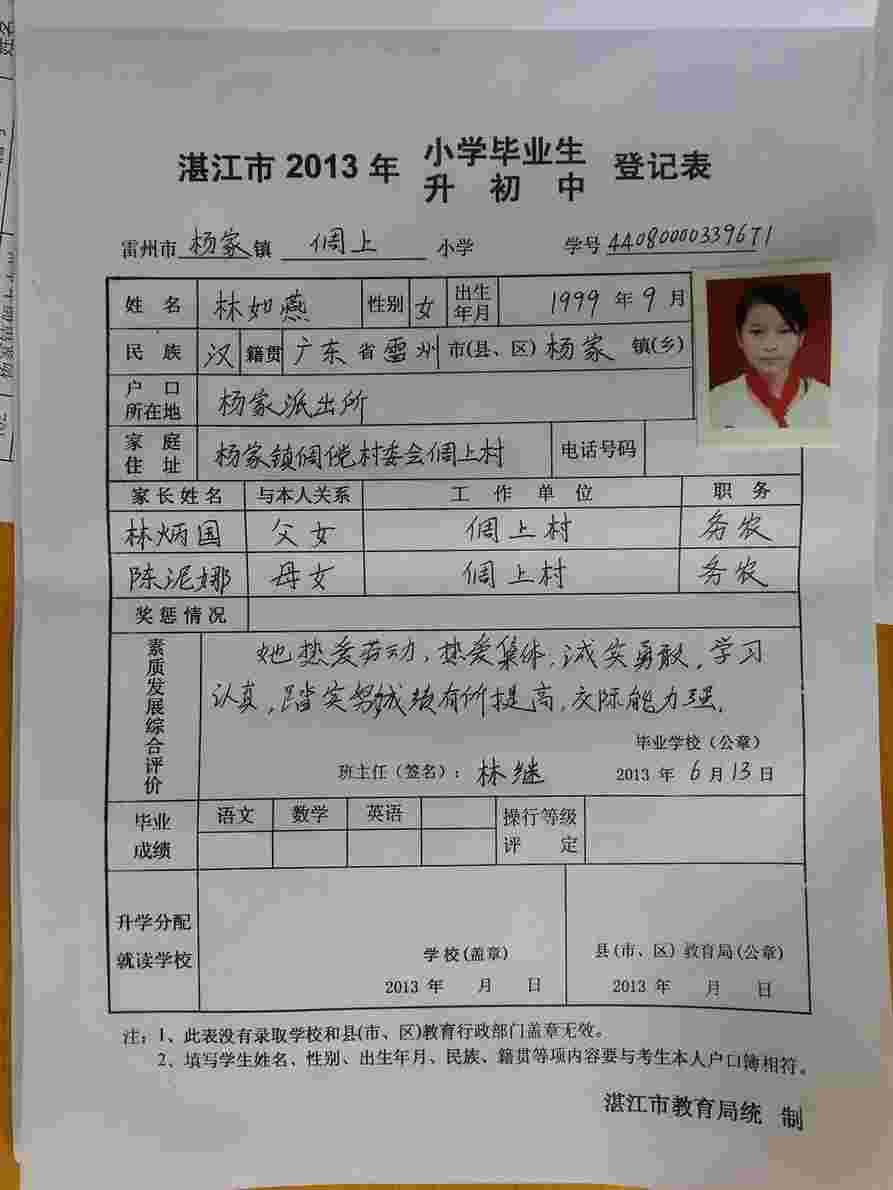 湛江市 2013 年 小学毕业生 登记表
升 初 中
雷州市 杨家 镇 倜上 小学 学号 44080000339671
姓 名 林如燕 性别 女 出生年月 1999 年 9 月
民 族 汉 籍贯 广东 省 雷州 市(县、区) 杨家 镇(乡)
户 口 所在地 杨家派出所
家 庭 住 址 杨家镇倜傥村委会倜上村 电话号码
家长姓名 与本人关系 工 作 单 位 职 务
林炳国 父女 倜上村 务农
陈泥娜 母女 倜上村 务农
奖惩情况
素质发展综合评价
她热爱劳动、热爱集体、诚实勇敢,学习
认真,踏实努成绩有所提高,交际能力强,
毕业学校(公章)
班主任(签名): 林继 2013 年 6 月 13 日
毕业成绩 语文 数学 英语 操行等级评 定
升学分配
就读学校
学校(盖章) 县(市、区)教育局(公章)
2013 年 月 日 2013 年 月 日
注:1、此表没有录取学校和县(市、区)教育行政部门盖章无效。
2、填写学生姓名、性别、出生年月、民族、籍贯等项内容要与考生本人户口簿相符。
湛江市教育局统 制